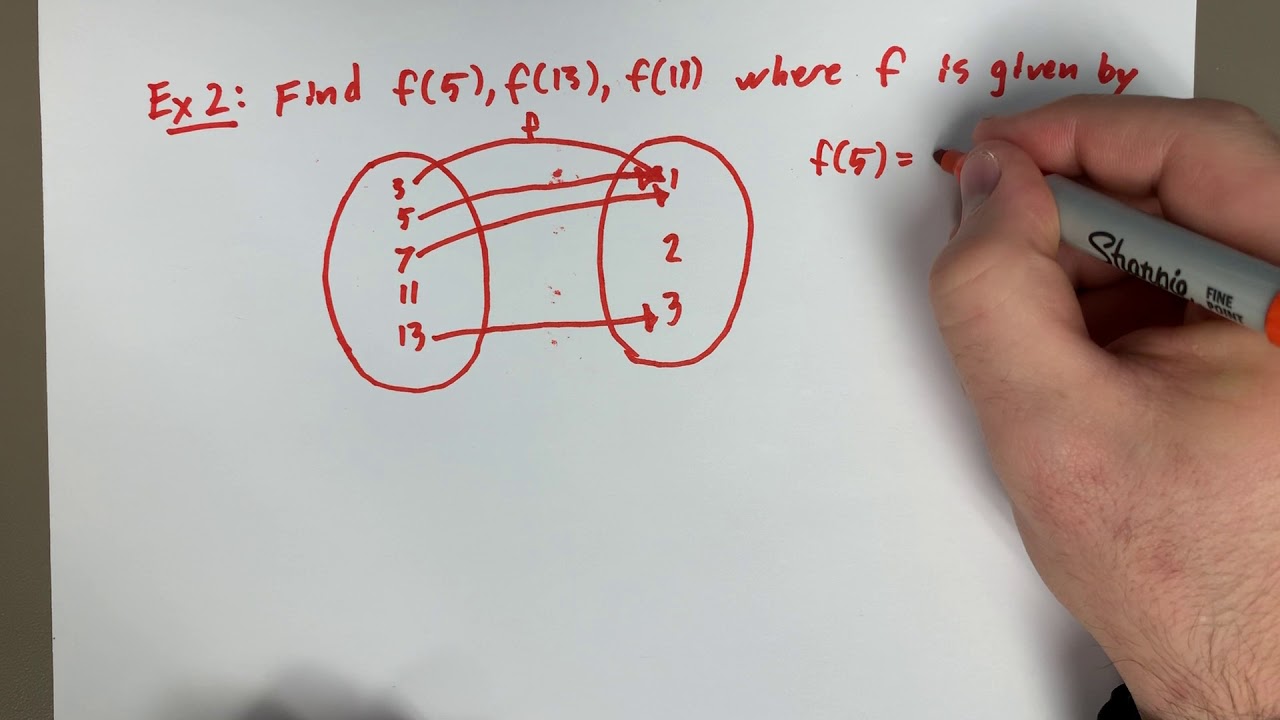 Ex 2: Find f(5), f(13), f(11) where f is given by
f
f(5) =
3 1
5
7 2
11
13 3
Sharpie
FINE
POINT